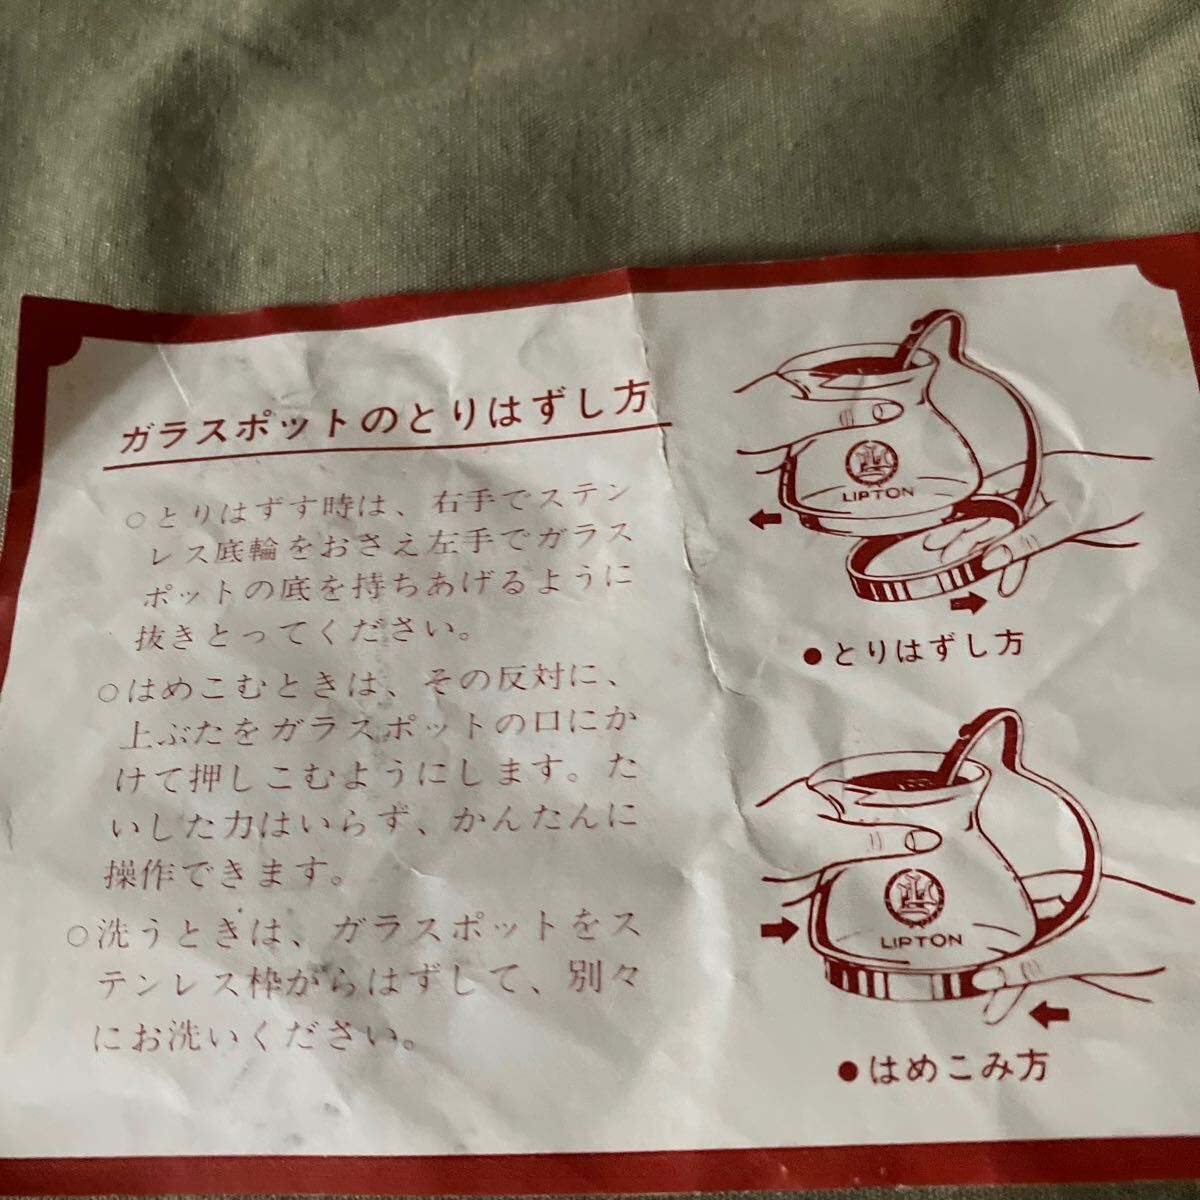 ガラスポットのとりはずし方
○とりはずす時は、右手でステン
レス底輪をおさえ左手でガラス
ポットの底を持ちあげるように
抜きとってください。
○はめこむときは、その反対に、
上ぶたをガラスポットの口にか
けて押しこむようにします。た
いした力はいらず、かんたんに
操作できます。
○洗うときは、ガラスポットをス
テンレス枠がらはずして、別々
にお洗いください。
LIPTON
●とりはずし方
LIPTON
●はめこみ方